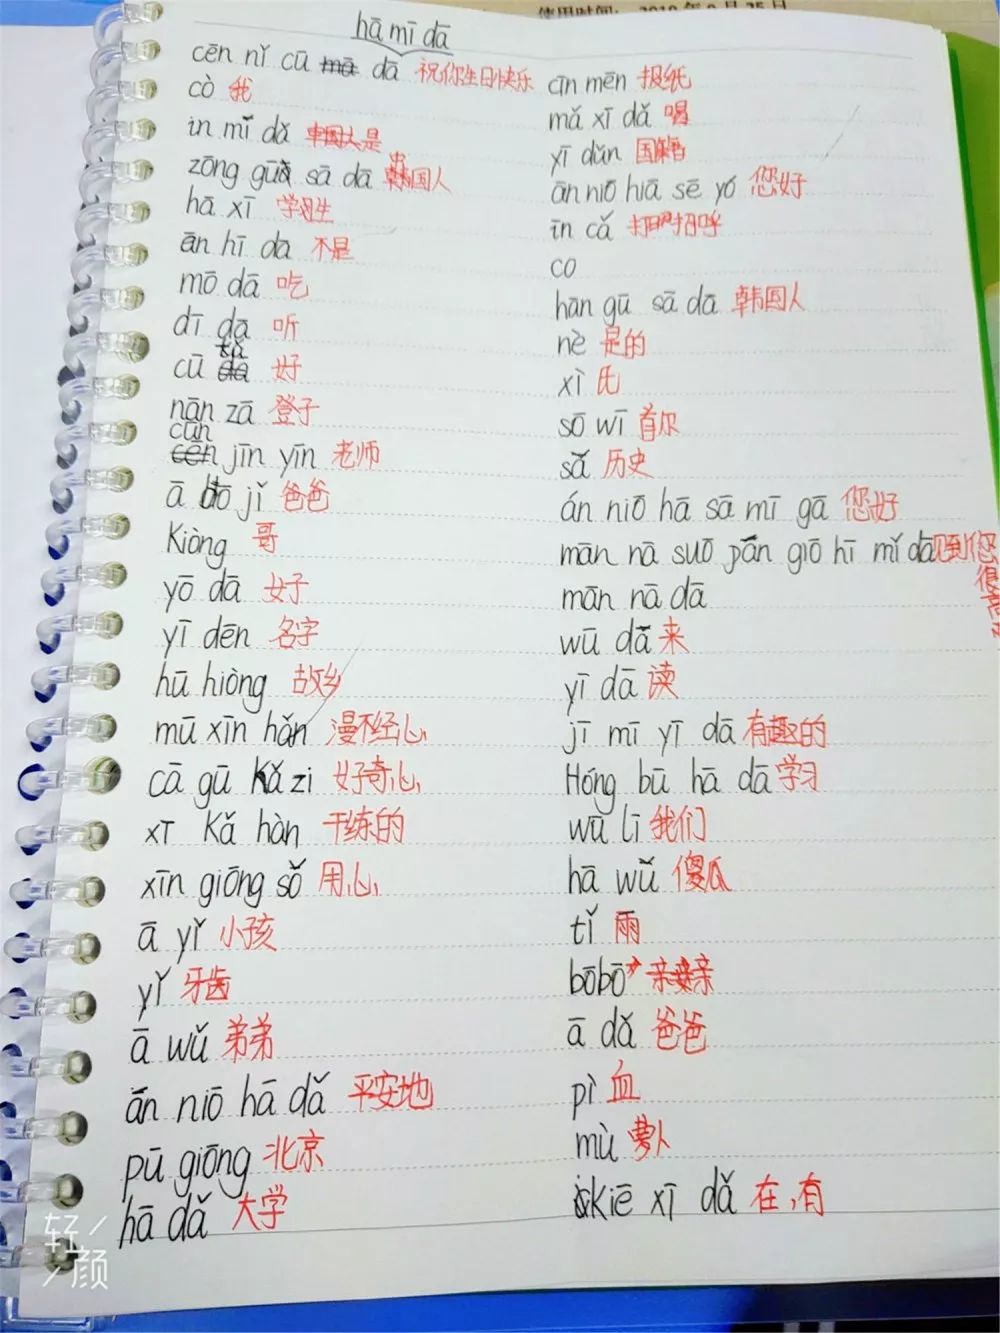 使用时间: 2019年9月25日
hā mī dā
cēn nǐ cū mā dā 祝你生日快乐
cò 我
in mǐ dǎ 中国人是
zōng guā sā dā 韩国人
hā xī 学生
ān hī da 不是
mō dā 吃
dī dā 听
cū dā tā 好
nān zā 登子
cēn cūn jīn yīn 老师
ā bō jǐ 爸爸
Kiòng 哥
yō dā 女子
yī dēn 名字
hū hiòng 故乡
mū xīn hǎn 漫不经心
cā gū kǎ zi 好奇心
xī Kǎ hàn 干练的
xīn giōng sǒ 用心
ā yǐ 小孩
yǐ 牙齿
ā wǔ 弟弟
ǎn niō hā dǎ 平安地
pū giōng 北京
hā dǎ 大学
cīn mēn 报纸
mǎ xī dǎ 喝
yī dǔn 国籍
ān niō hiā sē yó 您好
īn cǎ 打招呼
co
hān gū sā dā 韩国人
nè 是的
xì 氏
sō wī 首尔
sǎ 历史
án niō hā sā mī gā 您好
mān nā suō pán giō hī mǐ dā 见到您很高
mān nā dā
wū dǎ 来
yī dā 读
jī mī yī dā 有趣的
Hóng bū hā dā 学习
wū lī 我们
hā wǔ 傻瓜
tǐ 雨
bōbō 亲亲
ā dǎ 爸爸
pì 血
mù 萝卜
kiē xī dǎ 在,有
轻颜